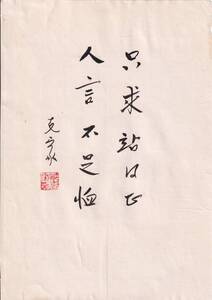 只求站得正
人言不足恤
克家